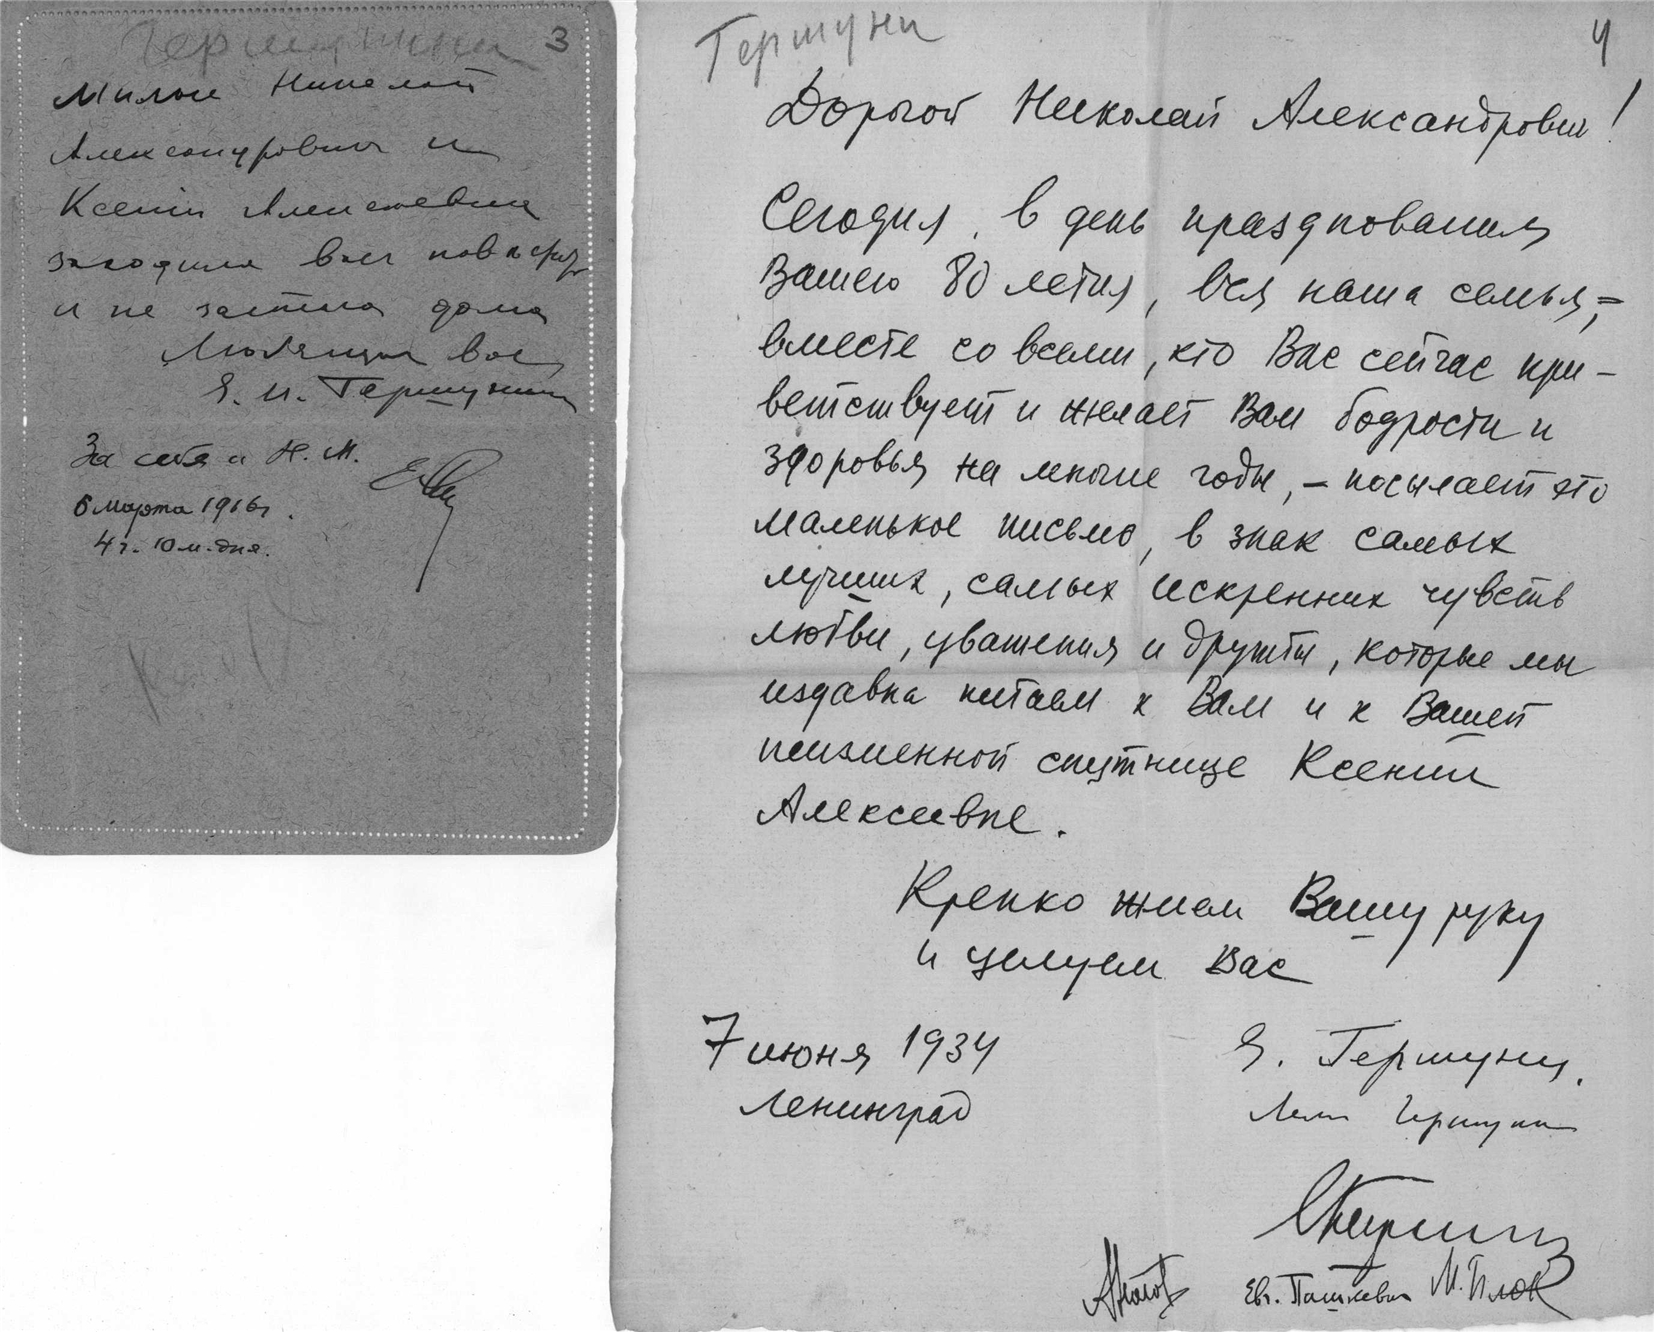 Гершуни 3
Милые Николай
Александрович и
Ксения Алексеевна
заходила вас
и не застала дома
Любящая вас
Гершуни
За себя и Н. М.
6 марта 1916 г.
4 ч. 10 м. дня.
Гершуни 4
Дорогой Николай Александрович!
Сегодня, в день празднования
Вашего 80 летия, вся наша семья, –
вместе со всеми, кто Вас сейчас при–
ветствует и желает Вам бодрости и
здоровья на многие годы, – посылает это
маленькое письмо, в знак самых
лучших, самых искренних чувств
любви, уважения и дружбы, которые мы
издавна питаем к Вам и к Вашей
неизменной спутнице Ксении
Алексеевне.
Крепко жмем Вашу руку
и целуем Вас
7 июня 1934
Ленинград
Гершуни.
Гершуни
Евг. Пашкевич М. Плок